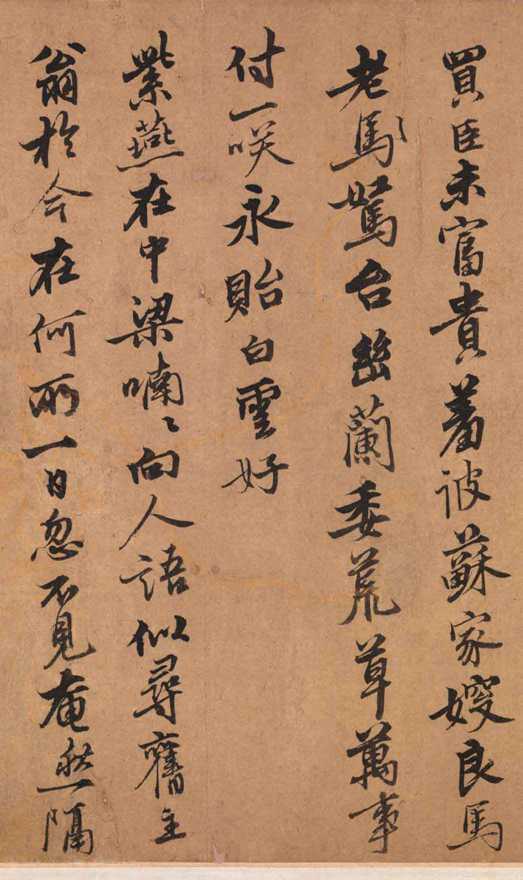 買臣未富貴羞被蘇家嫂良馬
老馬駑台幽蘭委荒草萬事
付一咲永貽白雲好
紫燕在中梁喃〻向人語似尋舊主
翁於今在何所一日忽不見奄然隔